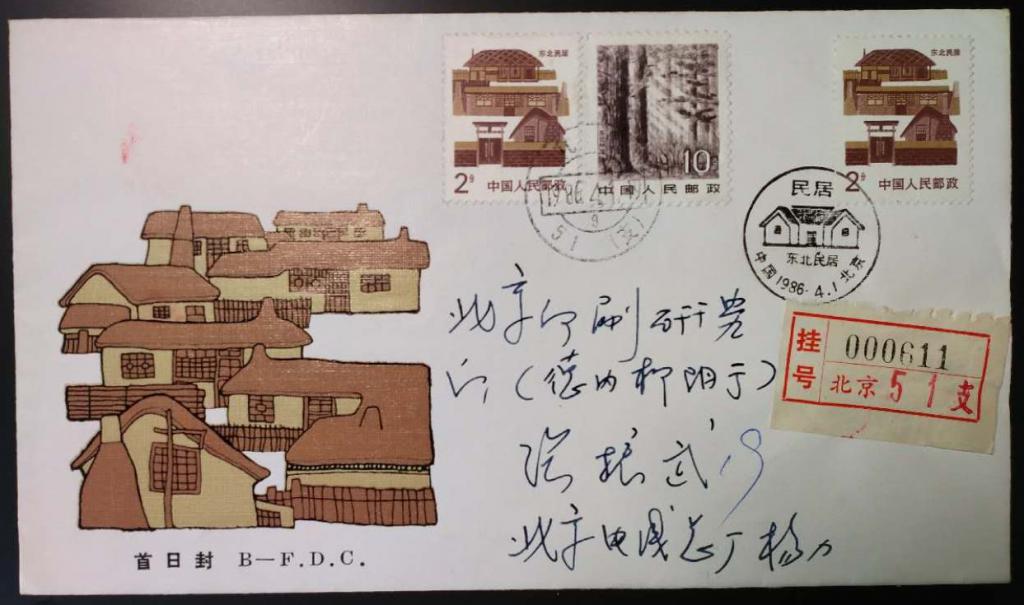 东北民居
2分
中国人民邮政
10分
中国人民邮政
东北民居
2分
中国人民邮政
1986.4.
51(支)
民居
东北民居
中国1986.4.1北京
北京印刷研究
所(德内柳阴子)
张振武
北京电
总厂杨
挂号
000611
北京51支
首日封 B—F.D.C.